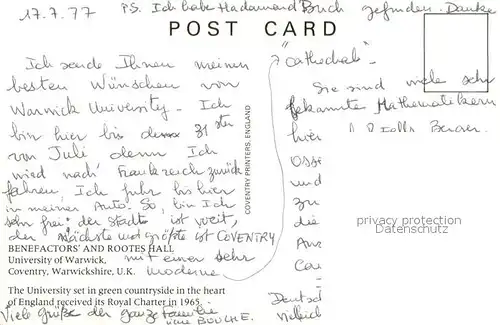 17.7.77 P.S. Ich habe Hadamard Buch gefunden. Danke
POST CARD
Ich sende Ihnen meinen
besten Wünschen von
Warwick University. Ich
bin hier bis 31 sten
von Juli denn Ich
wird nach Frankreich zurück
fahren, Ich fuhr bis hier
in meinen Auto. So, bin Ich
sehr frei: der Stadte ist weit,
der nächste und größte ist COVENTRY
mit einer sehr
moderne
"Cathedral".
Sie sind viele sehr
bekannte Mathematikern
hier
Osse
und
zu
die
Deutsch
vielleich
Viele Grüße der ganze Familie
BOUCHE.
COVENTRY PRINTERS, ENGLAND
BENEFACTORS' AND ROOTES HALL
University of Warwick,
Coventry, Warwickshire, U.K.
The University set in green countryside in the heart
of England received its Royal Charter in 1965.
privacy protection
Datenschutz